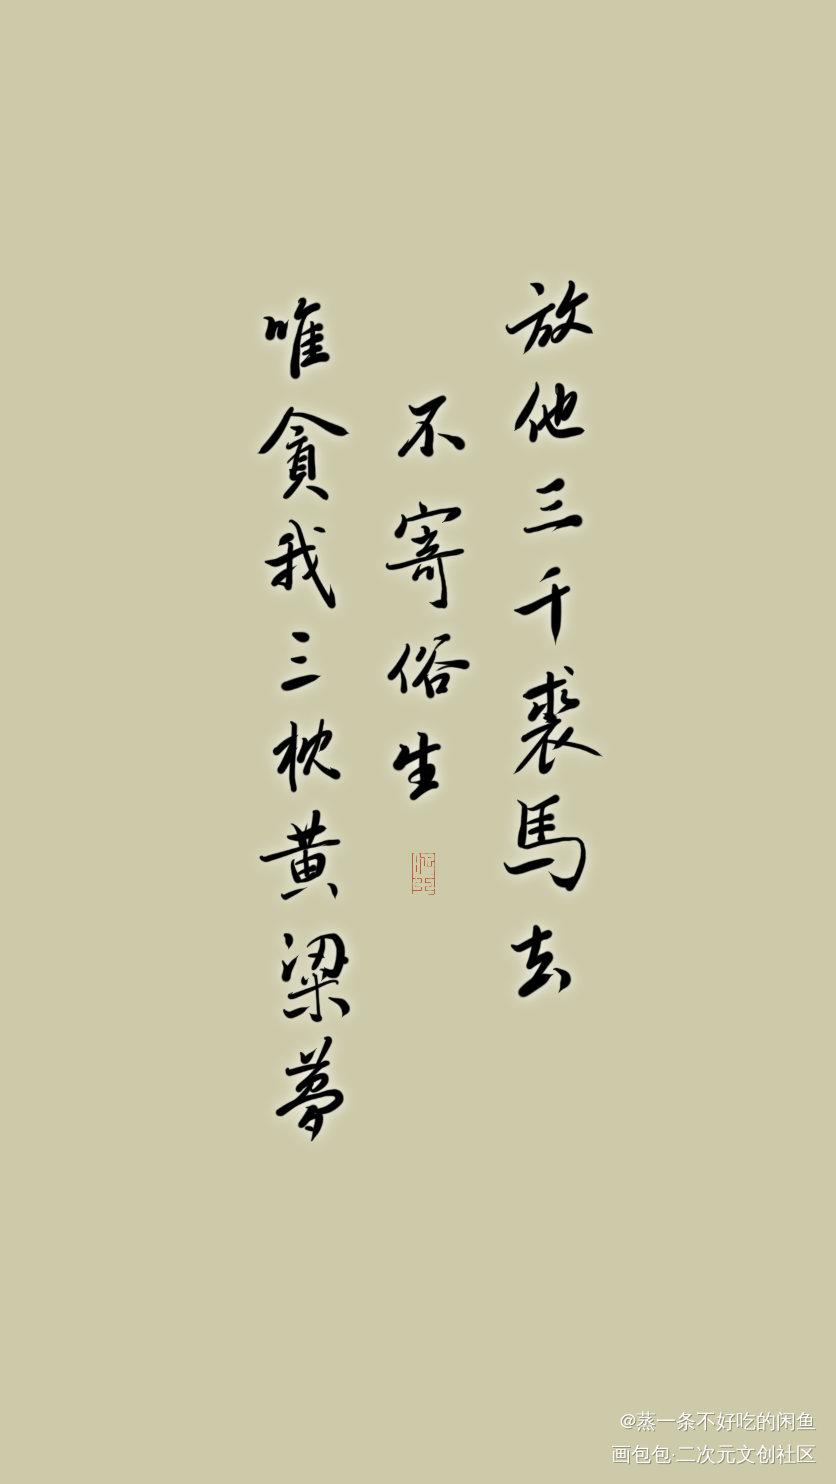 放他三千裘馬去
不寄俗生
唯貪我三枕黄粱夢
@蒸一条不好吃的闲鱼
画包包·二次元文创社区